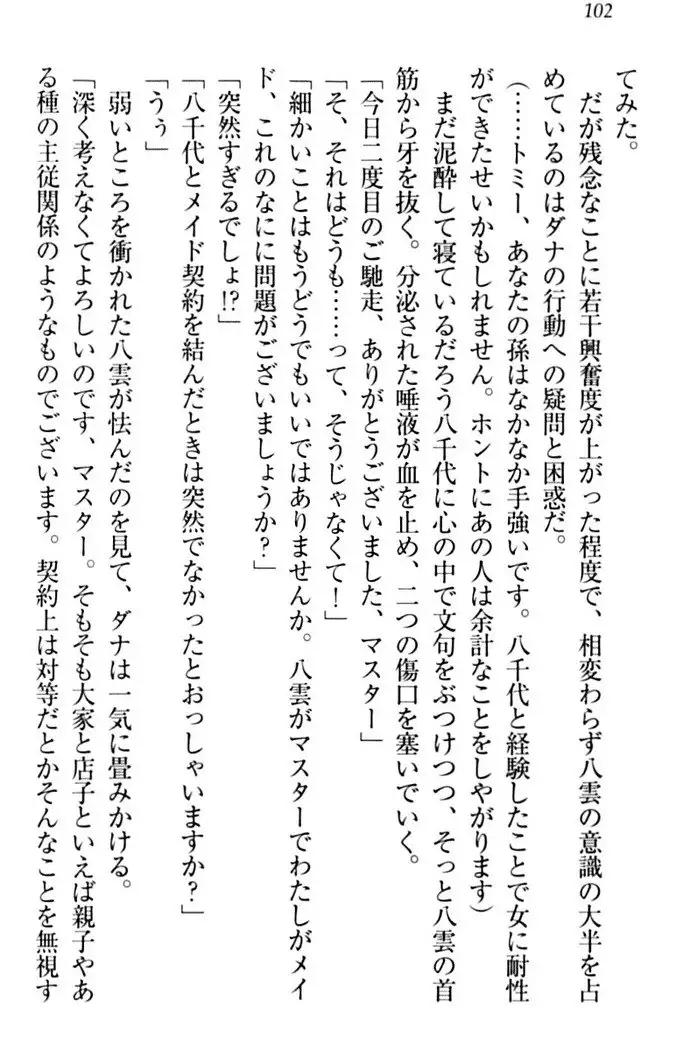 102
てみた。
　だが残念なことに若干興奮度が上がった程度で、相変わらず八雲の意識の大半を占
めているのはダナの行動への疑問と困惑だ。
（……トミー、あなたの孫はなかなか手強いです。八千代と経験したことで女に耐性
ができたせいかもしれません。ホントにあの人は余計なことをしやがります）
　まだ泥酔して寝ているだろう八千代に心の中で文句をぶつけつつ、そっと八雲の首
筋から牙を抜く。分泌された唾液が血を止め、二つの傷口を塞いでいく。
「今日二度目のご馳走、ありがとうございました、マスター」
「そ、それはどうも……って、そうじゃなくて！」
「細かいことはもうどうでもいいではありませんか。八雲がマスターでわたしがメイ
ド、これのなにに問題がございましょうか？」
「突然すぎるでしょ!?」
「八千代とメイド契約を結んだときは突然でなかったとおっしゃいますか？」
「うぅ」
　弱いところを衝かれた八雲が怯んだのを見て、ダナは一気に畳みかける。
「深く考えなくてよろしいのです、マスター。そもそも大家と店子といえば親子やあ
る種の主従関係のようなものでございます。契約上は対等だとかそんなことを無視す